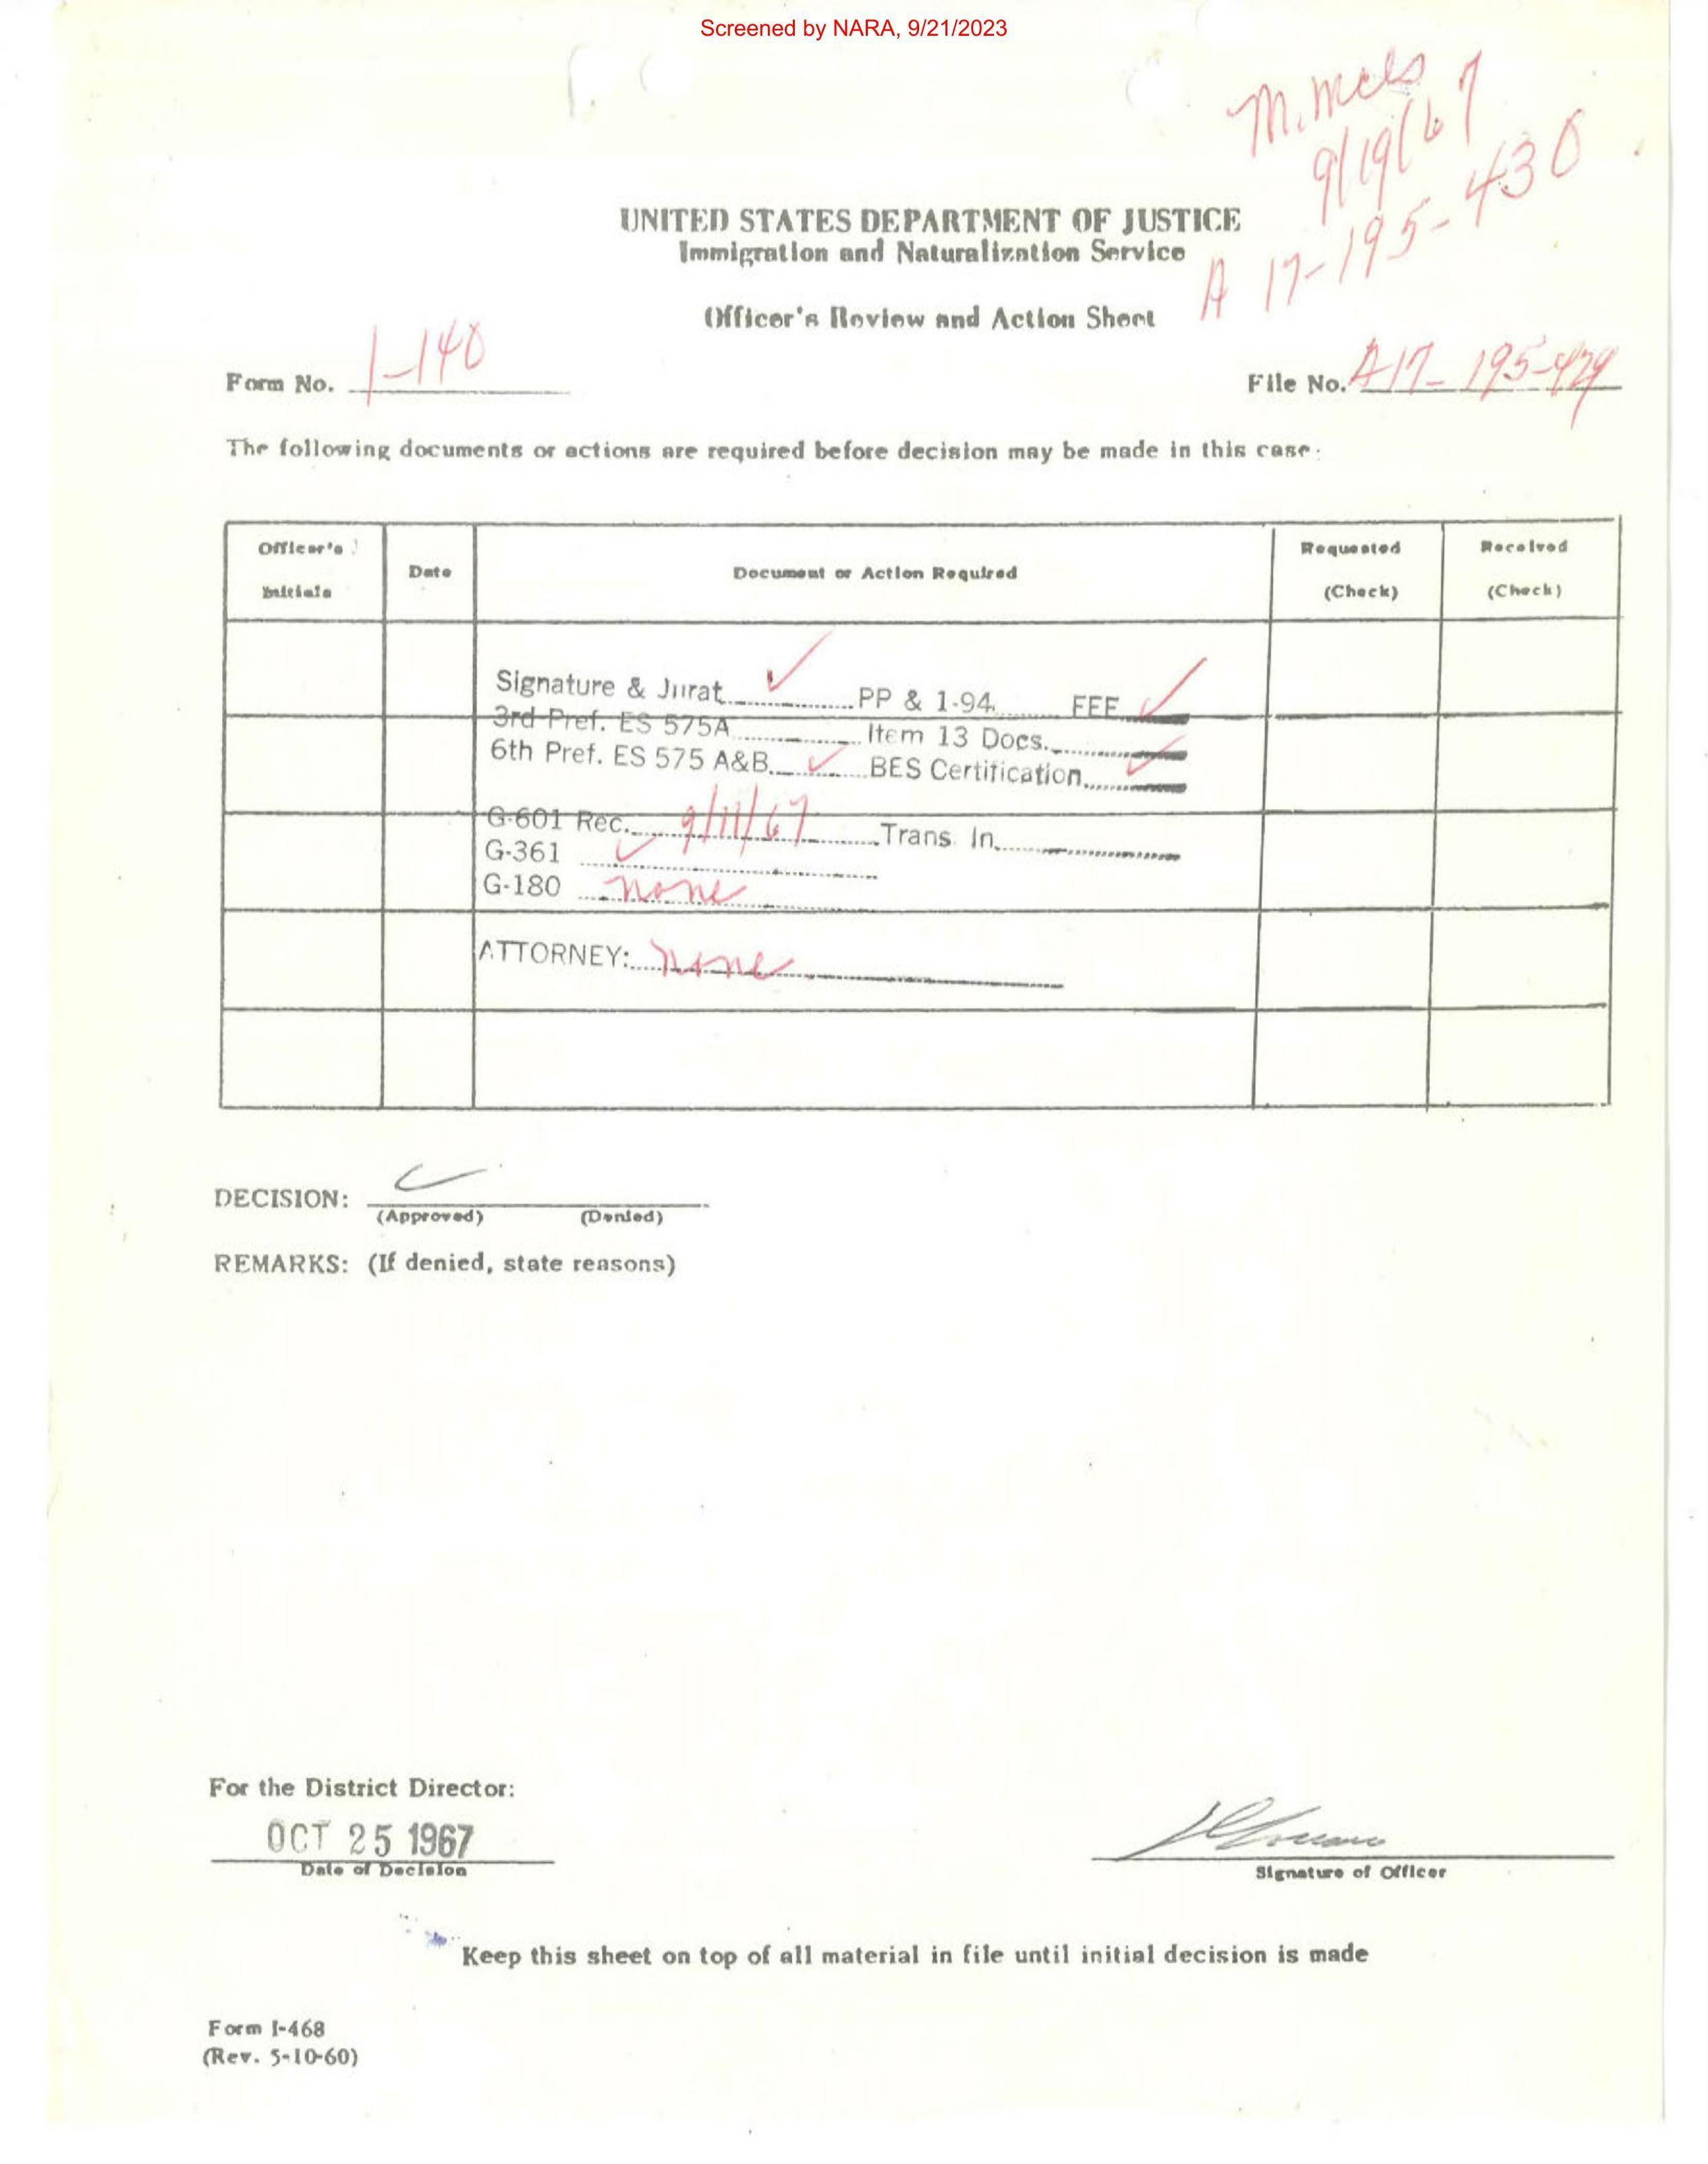 Screened by NARA, 9/21/2023
9/19/67
A 17-195-430
UNITED STATES DEPARTMENT OF JUSTICE
Immigration and Naturalization Service
Officer's Review and Action Sheet
Form No. I-140
File No. A17-195-429
The following documents or actions are required before decision may be made in this case:
Officer's Initials
Date
Document or Action Required
Requested (Check)
Received (Check)
Signature & Jurat ✓ PP & 1-94 FEE ✓
3rd Pref. ES 575A Item 13 Docs. ✓
6th Pref. ES 575 A&B ✓ BES Certification ✓
G-601 Rec. 9/11/67 Trans. In
G-361 ✓
G-180 none
ATTORNEY: none
DECISION: ✓
(Approved) (Denied)
REMARKS: (If denied, state reasons)
For the District Director:
OCT 25 1967
Date of Decision
Signature of Officer
Keep this sheet on top of all material in file until initial decision is made
Form I-468
(Rev. 5-10-60)